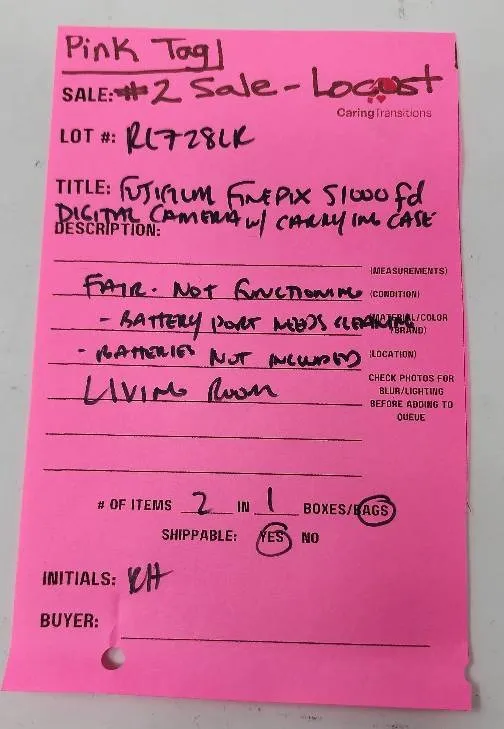 Pink Tag
SALE: #2 Sale - Locust
CaringTransitions
LOT #: RL728LR
TITLE: FUJIFILM FINEPIX S1000fd
DIGITAL CAMERA W/ CARRYING CASE
DESCRIPTION:
(MEASUREMENTS)
FAIR. NOT FUNCTIONING (CONDITION)
- BATTERY PORT NEEDS CLEANING (MATERIAL/COLOR
/BRAND)
- BATTERIES NOT INCLUDED (LOCATION)
LIVING ROOM CHECK PHOTOS FOR
BLUR/LIGHTING
BEFORE ADDING TO
QUEUE
# OF ITEMS 2 IN 1 BOXES/BAGS
SHIPPABLE: YES NO
INITIALS: RH
BUYER: